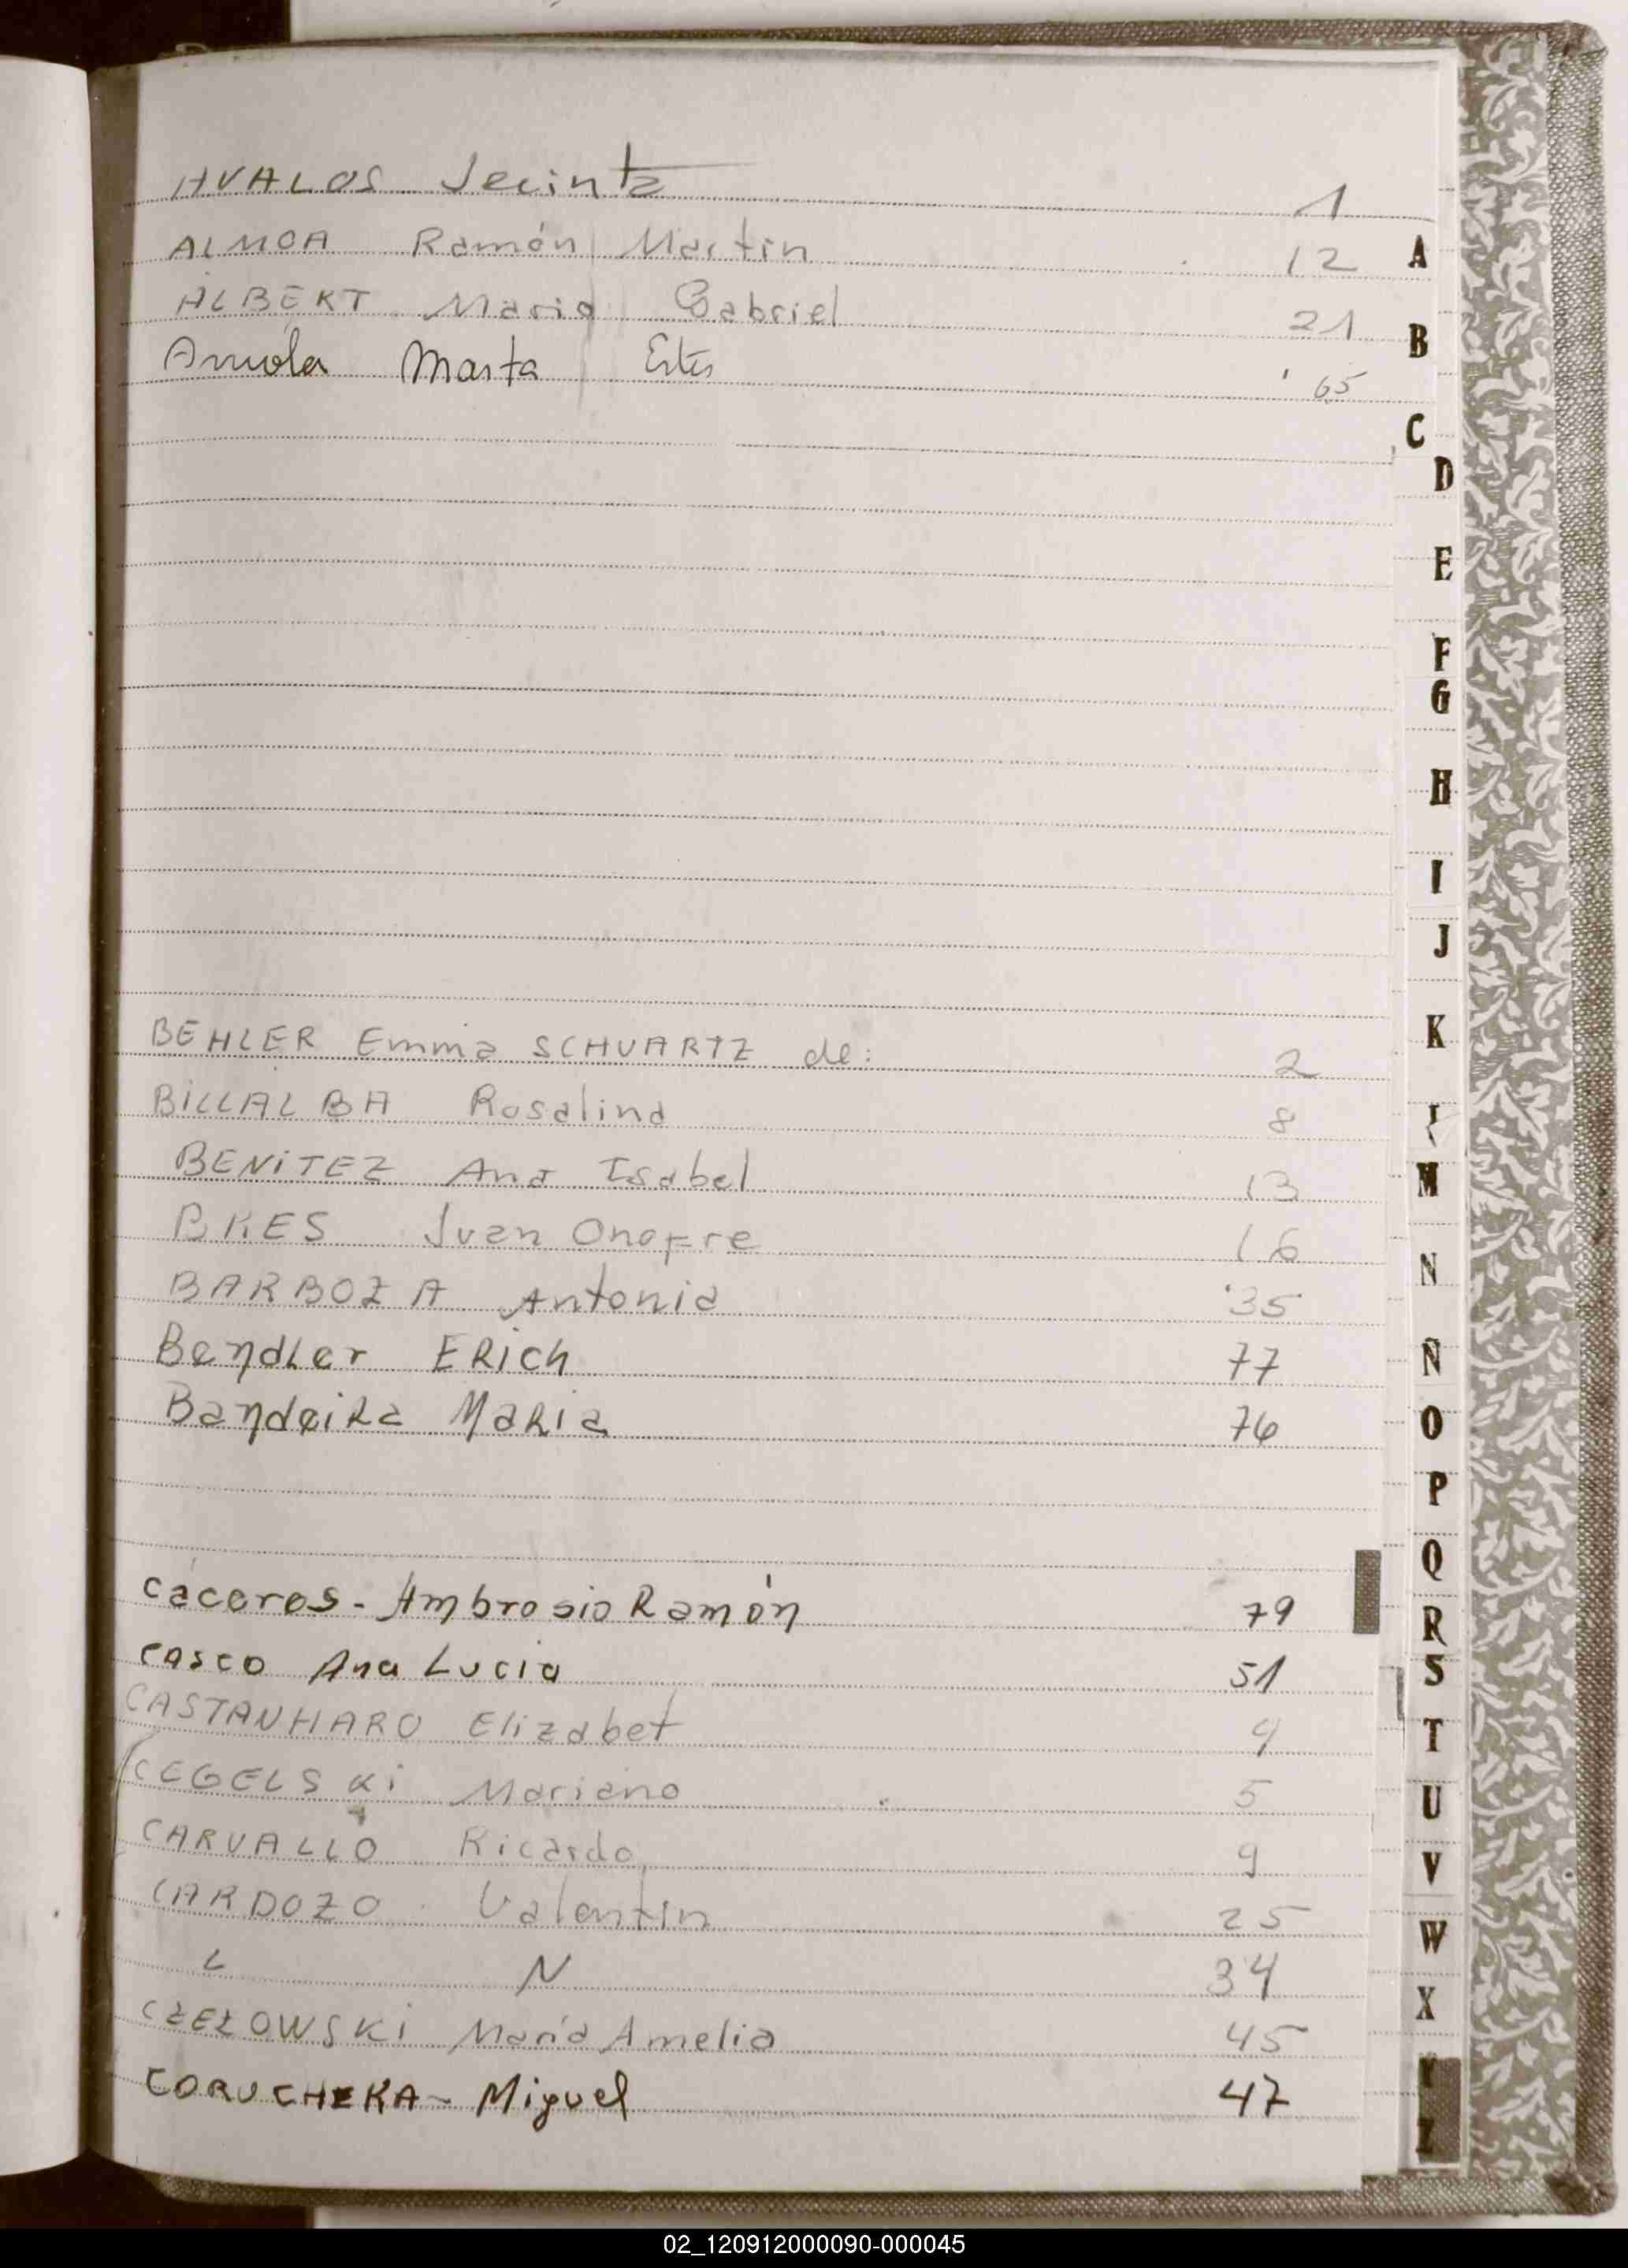 AVALOS Jecinta 1
ALMOA Ramón Martin 12
ALBERT Mario Gabriel 21
Marta 65
BEHLER Emma SCHUARTZ de: 2
BILLALBA Rosalina 8
BENITEZ Ana Isabel 13
BKES Juan Onofre 16
BARBOZA Antonia 35
Bendler ERich 77
Bandeira MaRia 76
cáceres - Ambrosio Ramón 79
casco Ana Lucia 51
CASTANHARO Elizabet 4
CEGELSKi Mariano 5
CARVALLO Ricardo 9
CARDOZO Valentin 25
L N 34
CZEZOWSKi María Amelia 45
CORUCHEKA - Miguel 47
A
B
C
D
E
F
G
H
I
J
K
M
N
Ñ
O
P
Q
R
S
T
U
V
W
X
Y
Z
02_120912000090-000045